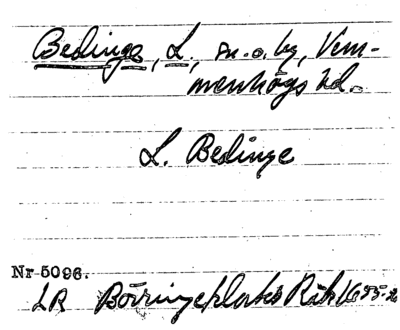 Beslinge, L., sn. o. by, Vem-
menhögs hd.
L. Beslinge
Nr 5096.
LR Börringeklosters Räk 1655-